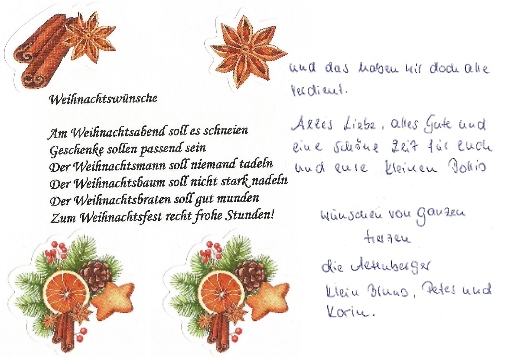 Weihnachtswünsche
Am Weihnachtsabend soll es schneien
Geschenke sollen passend sein
Der Weihnachtsmann soll niemand tadeln
Der Weihnachtsbaum soll nicht stark nadeln
Der Weihnachtsbraten soll gut munden
Zum Weihnachtsfest recht frohe Stunden!
und das haben wir doch alle
verdient.
Alles Liebe, alles Gute und
eine schöne Zeit für euch
und eure kleinen
wünschen von ganzen
Herzen
die
Klein Bruno, Peter und
Karin.